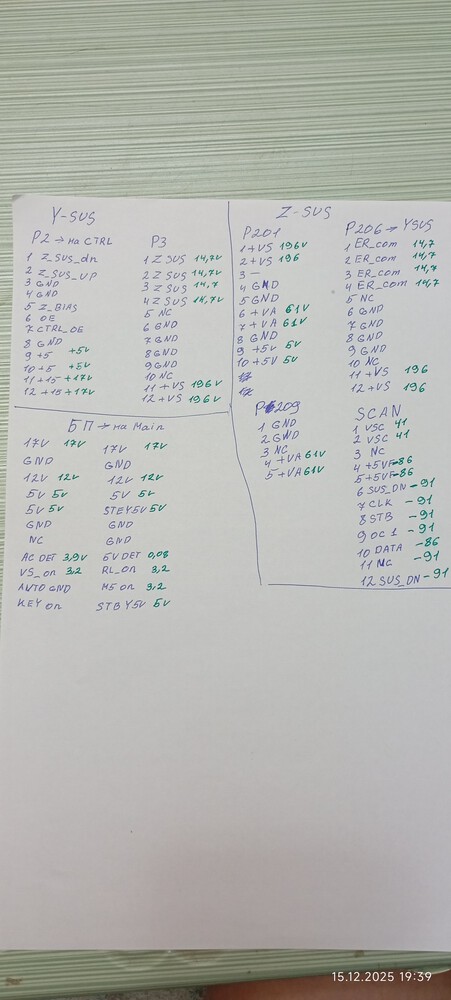 Y-SUS
P2 → на CTRL
1 Z_SUS_dn
2 Z_SUS_UP
3 GND
4 GND
5 Z_BIAS
6 OE
7 CTRL_OE
8 GND
9 +5 +5V
10 +5 +5V
11 +15 +17V
12 +15 +17V
P3
1 Z SUS 14,7V
2 Z SUS 14,7V
3 Z SUS 14,7
4 Z SUS 14,7V
5 NC
6 GND
7 GND
8 GND
9 GND
10 NC
11 +VS 196V
12 +VS 196V
Z-SUS
P201
1 +VS 196V
2 +VS 196
3 —
4 GND
5 GND
6 +VA 61V
7 +VA 61V
8 GND
9 +5V 5V
10 +5V 5V
P206 → YSUS
1 ER_com 14,7
2 ER_com 14,7
3 ER_com 14,7
4 ER_com 14,7
5 NC
6 GND
7 GND
8 GND
9 GND
10 NC
11 +VS 196
12 +VS 196
БП → на Main
17V 17V
GND
12V 12V
5V 5V
5V 5V
GND
NC
AC DET 3,9V
VS_on 3,2
AVTO GND
KEY on
17V 17V
GND
12V 12V
5V 5V
STBY5V 5V
GND
GND
5V DET 0,08
RL_on 3,2
M5 on 3,2
STBY5V 5V
P209
1 GND
2 GND
3 NC
4 +VA 61V
5 +VA 61V
SCAN
1 VSC 41
2 VSC 41
3 NC
4 +5VF -86
5 +5VF -86
6 SUS_DN -91
7 CLK -91
8 STB -91
9 OC1 -91
10 DATA -86
11 NC -91
12 SUS_DN -91
15.12.2025 19:39